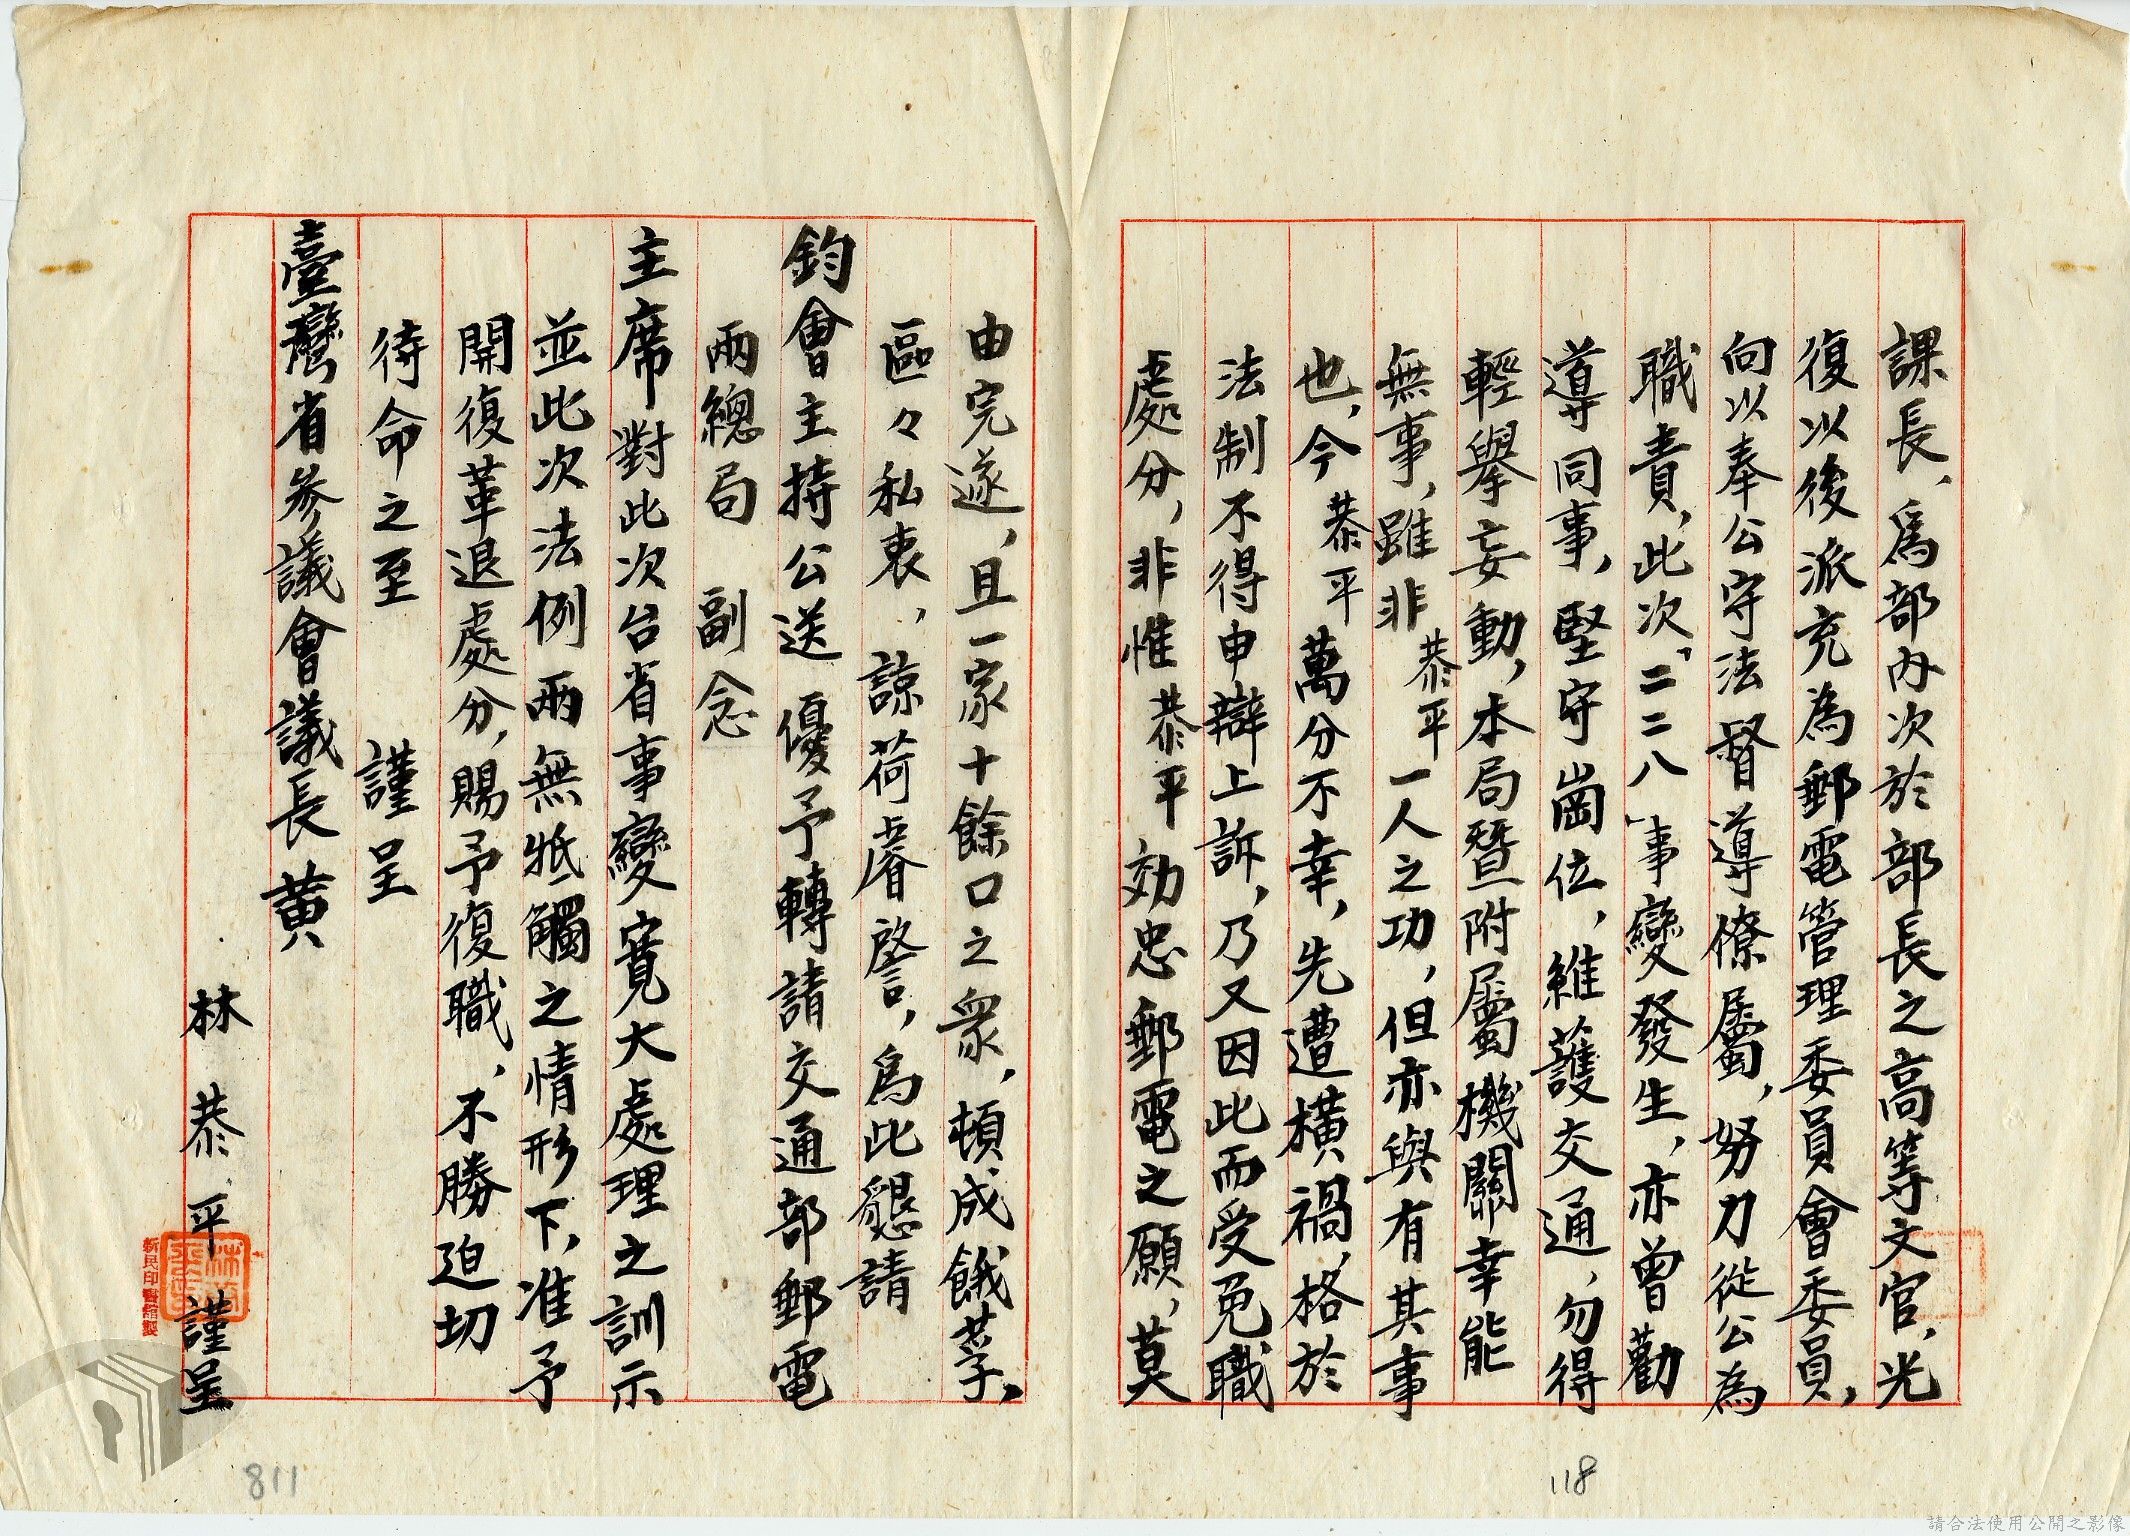 課長、為部內次於部長之高等文官，光
復以後派充為郵電管理委員會委員，
向以奉公守法督導僚屬，努力從公為
職責，此次「二二八」事變發生，亦曾勸
導同事，堅守崗位，維護交通，勿得
輕舉妄動，本局暨附屬機關幸能
無事，雖非恭平一人之功，但亦與有其事
也，今恭平萬分不幸，先遭橫禍，格於
法制不得申辯上訴，乃又因此而受免職
處分，非惟恭平効忠郵電之願，莫
由完遂，且一家十餘口之眾，頓成餓莩，
區々私衷，諒荷睿詧，為此懇請
鈞會主持公送優予轉請交通部郵電
兩總局　副念
主席對此次台省事變寬大處理之訓示
並此次法例兩無牴觸之情形下，准予
開復革退處分，賜予復職，不勝迫切
待命之至　謹呈
臺灣省參議會議長黃
林恭平謹呈
新民印書館製
811
118
請合法使用公開之影像